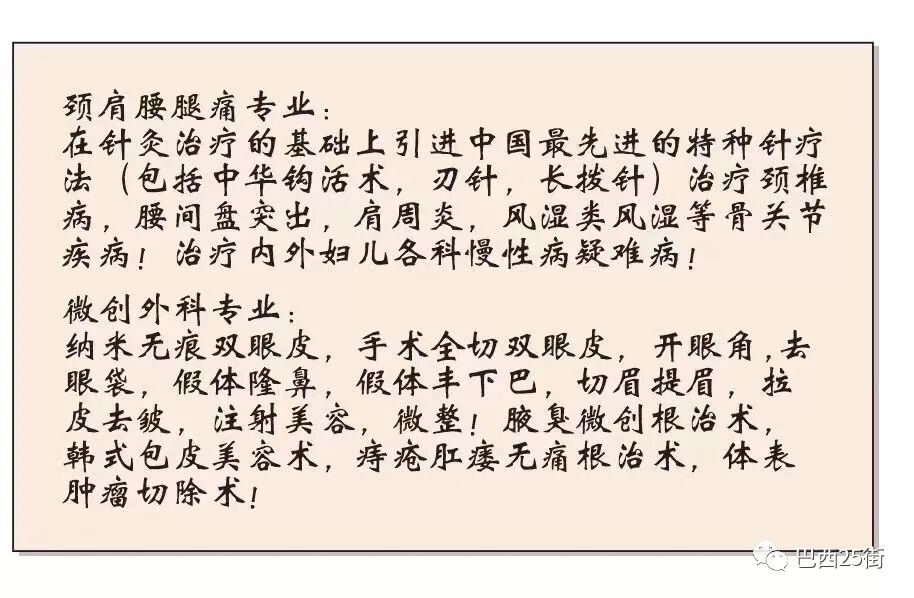 颈肩腰腿痛专业：
在针灸治疗的基础上引进中国最先进的特种针疗
法（包括中华钩活术，刃针，长拨针）治疗颈椎
病，腰间盘突出，肩周炎，风湿类风湿等骨关节
疾病！治疗内外妇儿各科慢性病疑难病！
微创外科专业：
纳米无痕双眼皮，手术全切双眼皮，开眼角,去
眼袋，假体隆鼻，假体丰下巴，切眉提眉，拉
皮去皱，注射美容，微整！腋臭微创根治术，
韩式包皮美容术，痔疮肛瘘无痛根治术，体表
肿瘤切除术！
巴西25街